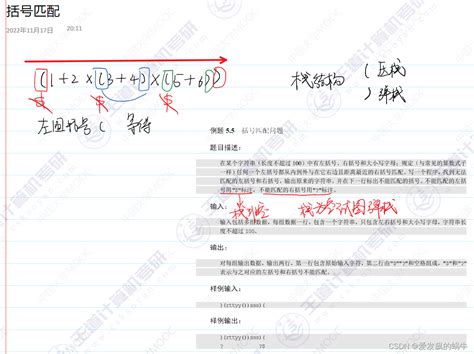 括号匹配
2022年11月17日 20:11
(1+2×(3+4)×(5+6))
栈结构 ( 压栈
) 弹栈
左圆括号( 等待
例题 5.5 括号匹配问题
题目描述:
在某个字符串(长度不超过 100)中有左括号、右括号和大小写字母;规定(与常见的算数式子
一样)任何一个左括号都从内到外与在它右边且距离最近的右括号匹配。写一个程序,找到无法
匹配的左括号和右括号,输出原来的字符串,并在下一行标出不能匹配的括号。不能匹配的左括
号用"$"标注,不能匹配的右括号用"?"标注。
输入:
栈为空试图弹栈
输入包括多组数据,每组数据一行,包含一个字符串,只包含左右括号和大小写字母,字符串长
度不超过 100。
输出:
对每组输出数据,输出两行,第一行包含原始输入字符,第二行由"$""?"和空格组成,"$"和"?"
表示与之对应的左括号和右括号不能匹配。
样例输入:
)(rttyy())sss)(
样例输出:
)(rttyy())sss)(
? ?$
CSDN @爱发飙的蜗牛